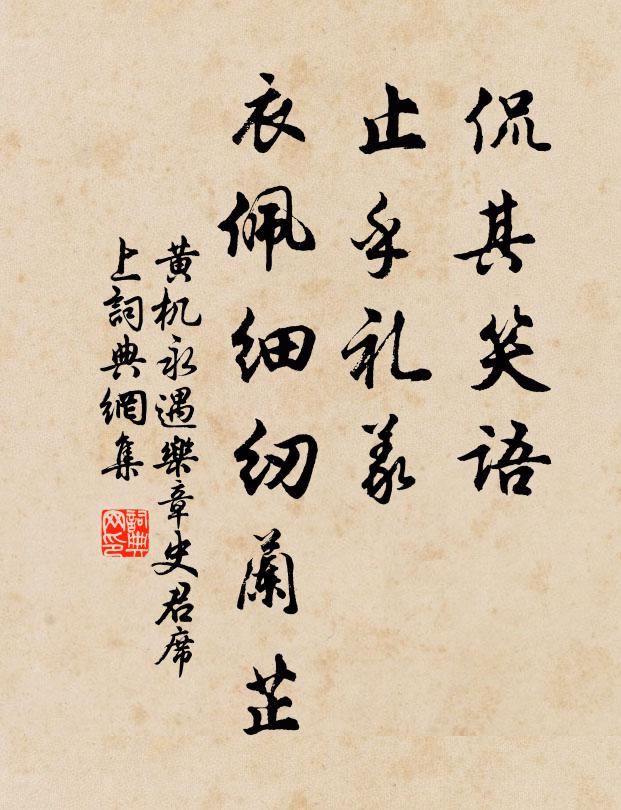 侃其笑语
止乎礼义
衣佩细纫蘭芷
黄机永遇樂章史君席
上詞典網集
詞典网印